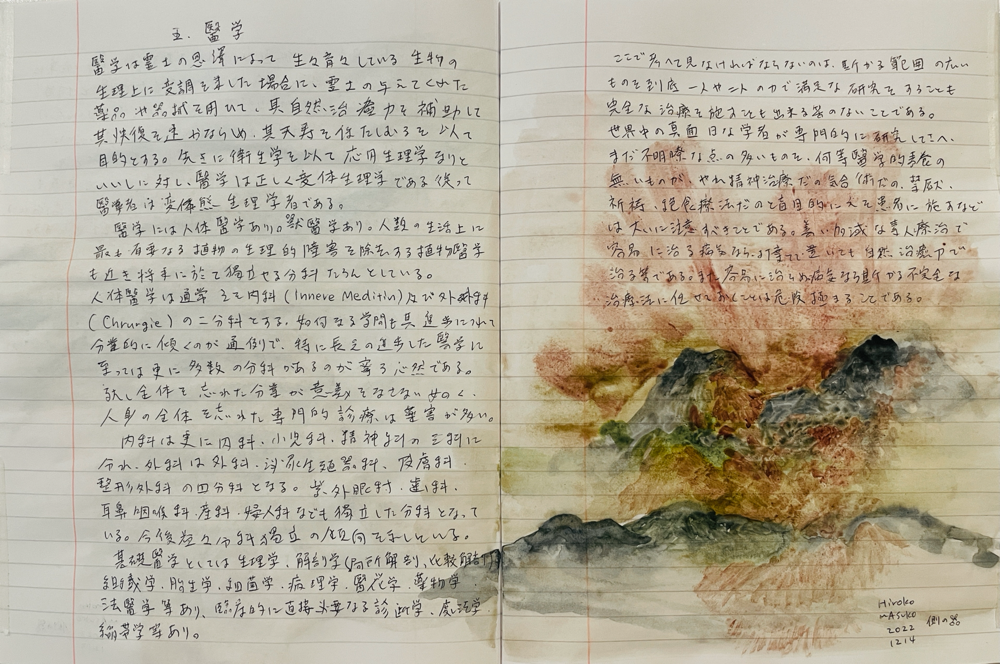 五. 醫学
醫学は霊土の恩澤によって 生々育々している 生物の
生理上に変調を来した場合に、霊土の与えてくれた
薬品や器拭を用ひて、其自然治癒力を補助して
其快復を速かならしめ、其天寿を保たしむるを以て
目的とする。先きに衛生学を以て 応用生理学なりと
いいしに対し、醫学は正しく変体生理学である 従って
醫学者は変体態 生理学者である。
醫学には人体醫学あり。獣醫学あり。人類の生活上に
最も有要なる植物の生理的障害を除去する植物醫学
も近き将来に於て獨立せる分科たらんとしている。
人体醫学は通常 之を内科 (Innere Meditin)及び外科
(Chrurgie) の二分科とする、如何なる学問も其進歩につれて
分業的に傾くのが通例で、特に長足の進歩した醫学に
至っては更に多数の分科があるのが寧ろ必然である。
然し全体を忘れた分業が意義をなさない如く、
人身の全体を忘れた専門的診療は弊害が多い。
内科は更に内科、小児科、精神科の三科に
分れ、外科は外科、泌尿生殖器科、皮膚科、
整形外科の四分科となる。其外眼科、歯科、
耳鼻咽喉科、産科、婦人科なども獨立した分科となって
いる。今後益々分科獨立の傾向を示している。
基礎醫学としては生理学、解剖学(局所解剖、比較解剖)
組織学、胎生学、細菌学、病理学、醫化学、薬物学、
法醫学等あり、臨床的に直接必要なる診断学、処法学
繃帯学等あり。
ここで考へて見なければならないのは、斯かる範囲の広い
ものを到底一人や二人の力で満足な研究をすることも
完全な治療を施すことも出来る筈のないことである。
世界中の真面目な学者が専門的に研究してさへ、
まだ不明瞭な点の多いものを、何等醫学的素養の
無いものが、やれ精神治療だの気合術だの、禁厭、
祈祷、絶食療法だのと盲目的に之を患者に施すなど
は大いに注意すべきことである。善い加減な素人療治で
容易に治る病気なら、打棄てて置いても自然治癒力で
治る筈である。また容易に治らぬ病気なら斯かる不完全な
治療法に任せておくことは危険極まることである。
Hiroko
mAsuko
2022
1214
側の器